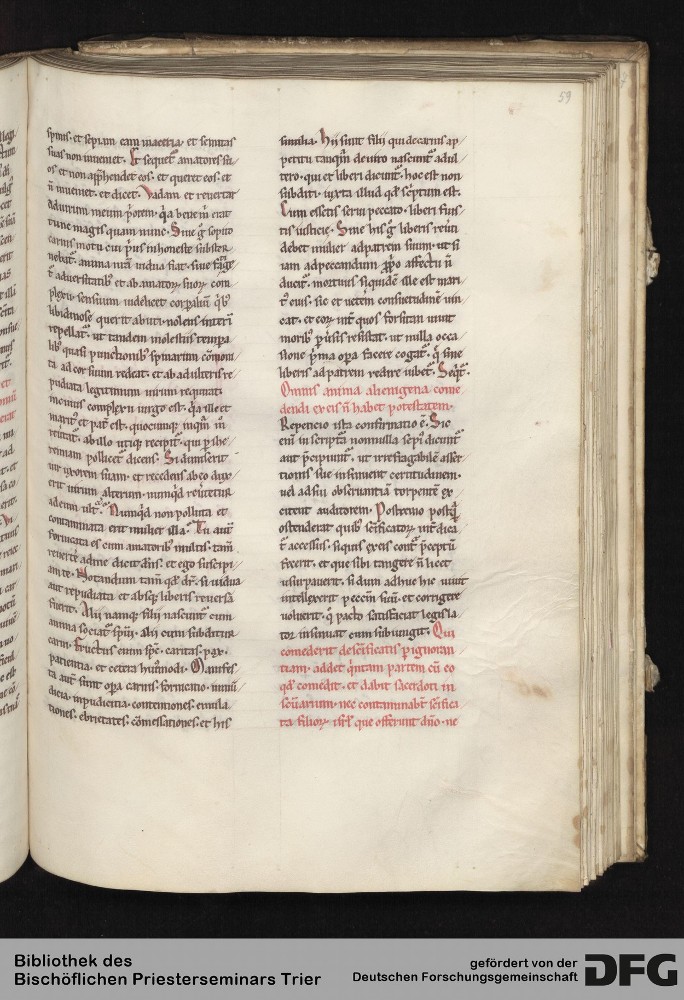 59
spinis. et sepiam eam maceria. et semitas
suas non inueniet. Et sequet᷑ amatores su
os et non app̄hendet eos. et queret eos. et
n̄ inueniet. et dicet. Vadam et reuertar
ad uirum meum p̄orem. q̇a bene m̄ erat
tunc magis quam nunc. Sine g̊ sopito
carnis motu cui p̄us inhoneste
anima uidua fiat. siue
t᷑ aduersitatib᷒ et ab amatoꝝ suoꝝ com
plexu sensuum uidelicet corꝑaliū q̇b᷒
libidinose querit abuti. nolens
repellat᷑. ut tandem molestiis
lib᷒ quasi punctionib᷒ spinarum
ta ad cor suum redeat. et ab adulteris re
pudiata legitimum uirum requirat.
in cuius complexu uirgo est. q̇a ille et
marit᷒ et pat̄ est.
ab illo utiq; recipit᷑. qui ꝑ ihe
remiam pollicet᷑ dicens. Si dimiserit
uir uxorem suam. et recedens ab eo dux
erit uirum alterum. nunq̇d reuertetur
ad eum ult᷑. Nunq̇d non polluta et
contaminata erit mulier illa. Tu aut̄
fornicata es cum amatorib᷒ multis. tam̄
reuert̄e ad me dicit dn̄s. et ego suscipi
am te. Notandum tam̄ qd̄ dr̄. si uidua
aut repudiata et absq; liberis reuersa
fuerit. Alii namq; filii nascunt᷑ cum
anima sociat᷑ spūi. alii cum subditur
carni. Fructus enim spc̄. caritas. pax.
patientia. et cetera hui᷒modi. Manifes
ta aut̄ sunt oꝑa carnis. fornicatio. inmū
dicia. inpudicitia. contentiones. emula
tiones. ebrietates. cōmessationes. et his
similia. Hii sunt filii qui de carnis ap
petitu tanq̄m de uiro nascunt᷑ adul
tero. qui et liberi dicunt᷑. hoc est non
subditi. iuxta illud qd̄ sc̄ptum est.
Cum essetis serui peccato. liberi fuis
tis iusticie. Sine his g̊ liberis reuti
debet mulier ad patrem suum. ut si
iam ad peccandum ꝓprio affectu n̄
ducit᷑. mortuus siquidē ille est mari
t᷒ eius. sic et uetem̄ consuetudinē uin
cat. et eoꝝ int̄ quos forsitan uiuit
morib᷒ ꝑuersis resistat. ut nulla occa
sione p̄ma oꝑa facere cogat᷑. q̇ sine
liberis ad patrem redire iubet᷑. Seq̇t᷑.
Omnis anima alienigena come
dendi ex eis n̄ habet potestatem.
Repeticio ista confirmatio ē. Sic
eni in scripta nonnulla sepi᷒ dicunt᷑
aut p̄cipiunt᷑. ut irrefragabilē asser
tionis sue insinuent certitudinem.
uel ad sui obseruantiā torpentē ex
citent auditorem. Postremo postq̄
ostenderat quib᷒ sc̄ificatoꝝ int̄dica
t᷑ accessus. siquis ex eis cont̄ p̄ceptū
fecerit. et que sibi tangere n̄ licet
usurpauerit. si dum adhuc hic uiuit
intellexerit peccm̄ suū. et corrigere
uoluerit. q̊ pacto satisfaciat legisla
tor insinuat cum subiungit. Qui
comederit de sc̄ificatis ꝑ ignoran
tiam. addet q̇ntam partem cū eo
qd̄ comedit. et dabit sacerdoti in
sc̄uarium. nec contaminab̄t sc̄ifica
ta filioꝝ isr̄l. que offerunt dn̄o. ne
Bibliothek des
Bischöflichen Priesterseminars Trier
gefördert von der
Deutschen Forschungsgemeinschaft
DFG